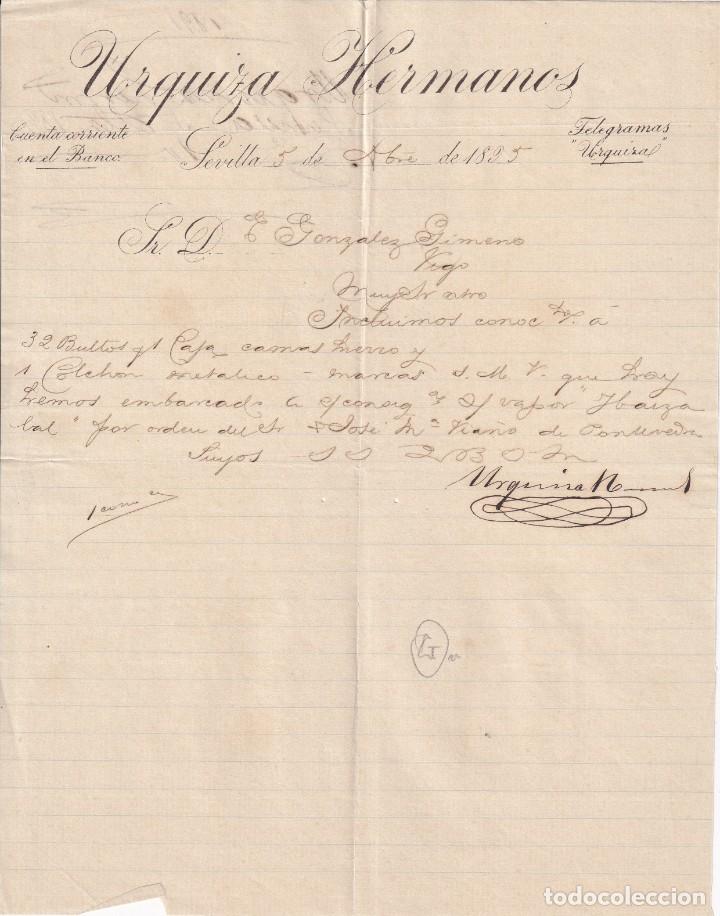 Urquiza Hermanos
Cuenta corriente
en el Banco
Telegramas
"Urquiza"
Sevilla 5 de Abre de 1895
Sr. D. E Gonzalez Gimeno
Vigo
Muy Sr ntro
Incluimos conoc to. á
32 Bultos y 1 Caja camas hierro y
1 Colchon metalico - marcas J. M V. que hoy
hemos embarcado a s/ consig on s/ vapor "Ybaiza
bal" por orden del Sr D José Ma Viaño de Pontevedra
Suyos S S Q B S M
Urquiza H
todocoleccion